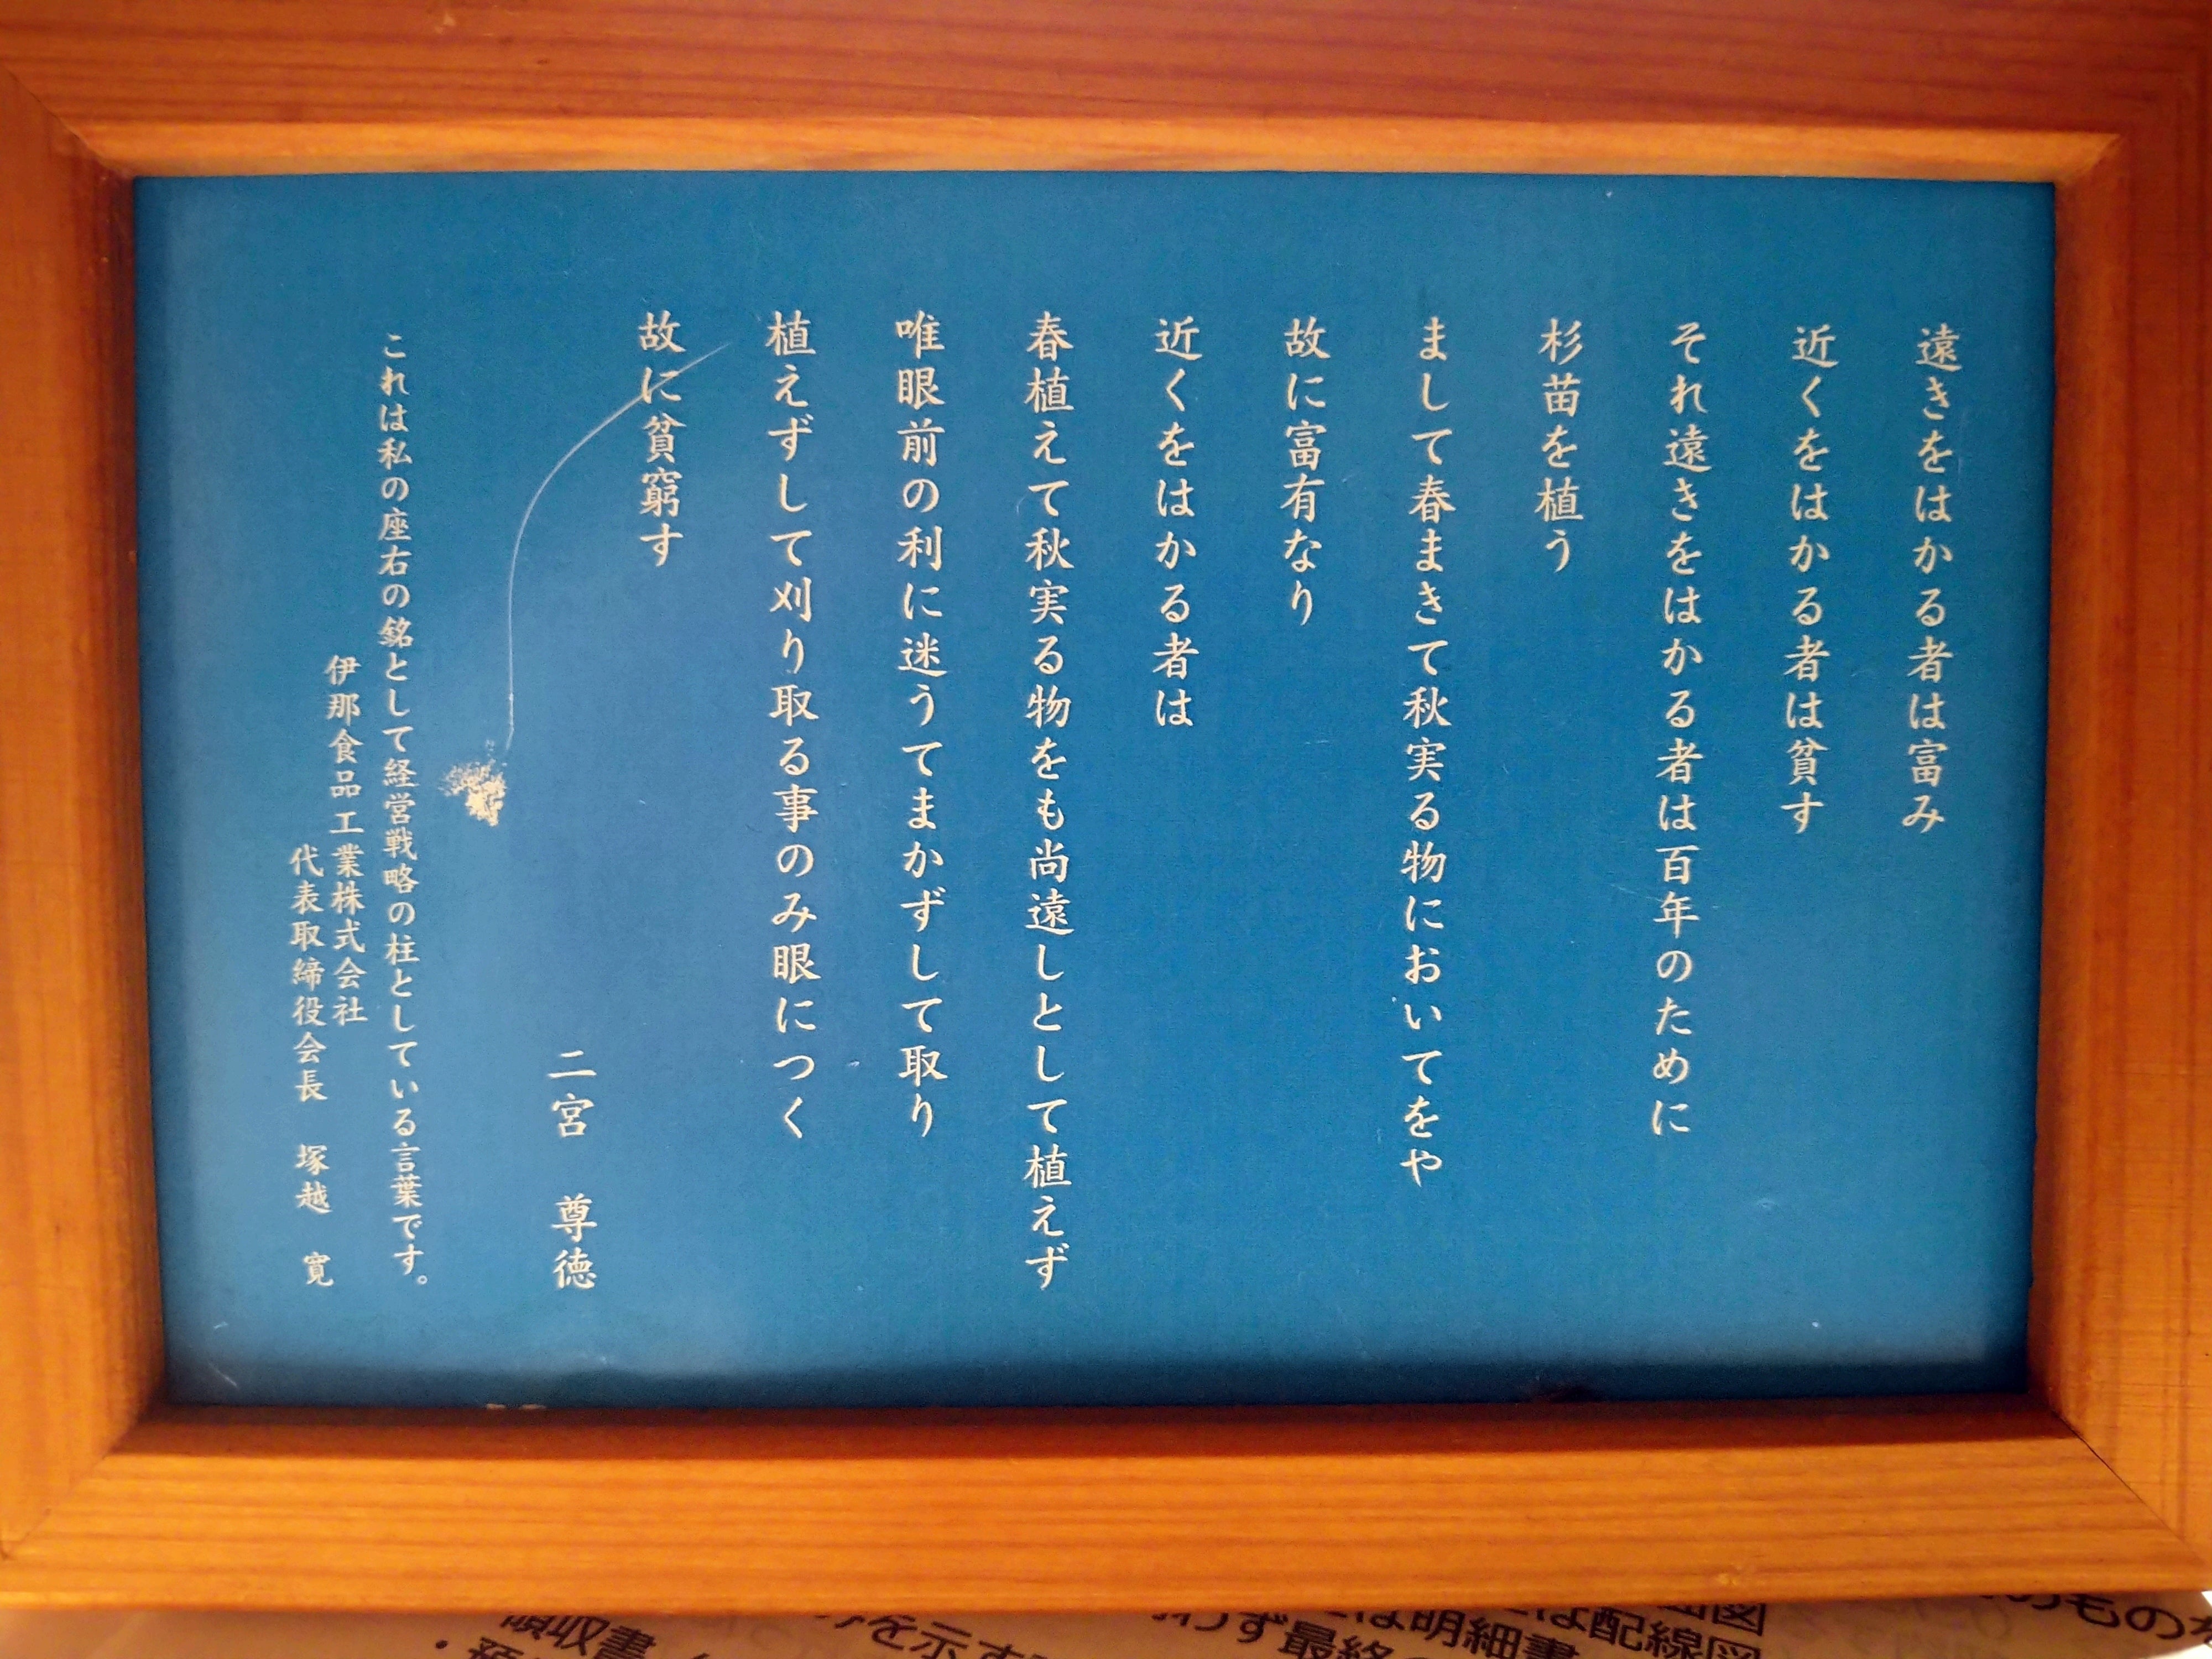 遠きをはかる者は富み
近くをはかる者は貧す
それ遠きをはかる者は百年のために
杉苗を植う
まして春まきて秋実る物においてをや
故に富有なり
近くをはかる者は
春植えて秋実る物をも尚遠しとして植えず
唯眼前の利に迷うてまかずして取り
植えずして刈り取る事のみ眼につく
故に貧窮す
二宮 尊徳
これは私の座右の銘として経営戦略の柱としている言葉です。
伊那食品工業株式会社
代表取締役会長 塚越 寛
領収書
を示す
わず最終
は明細書
は配線図